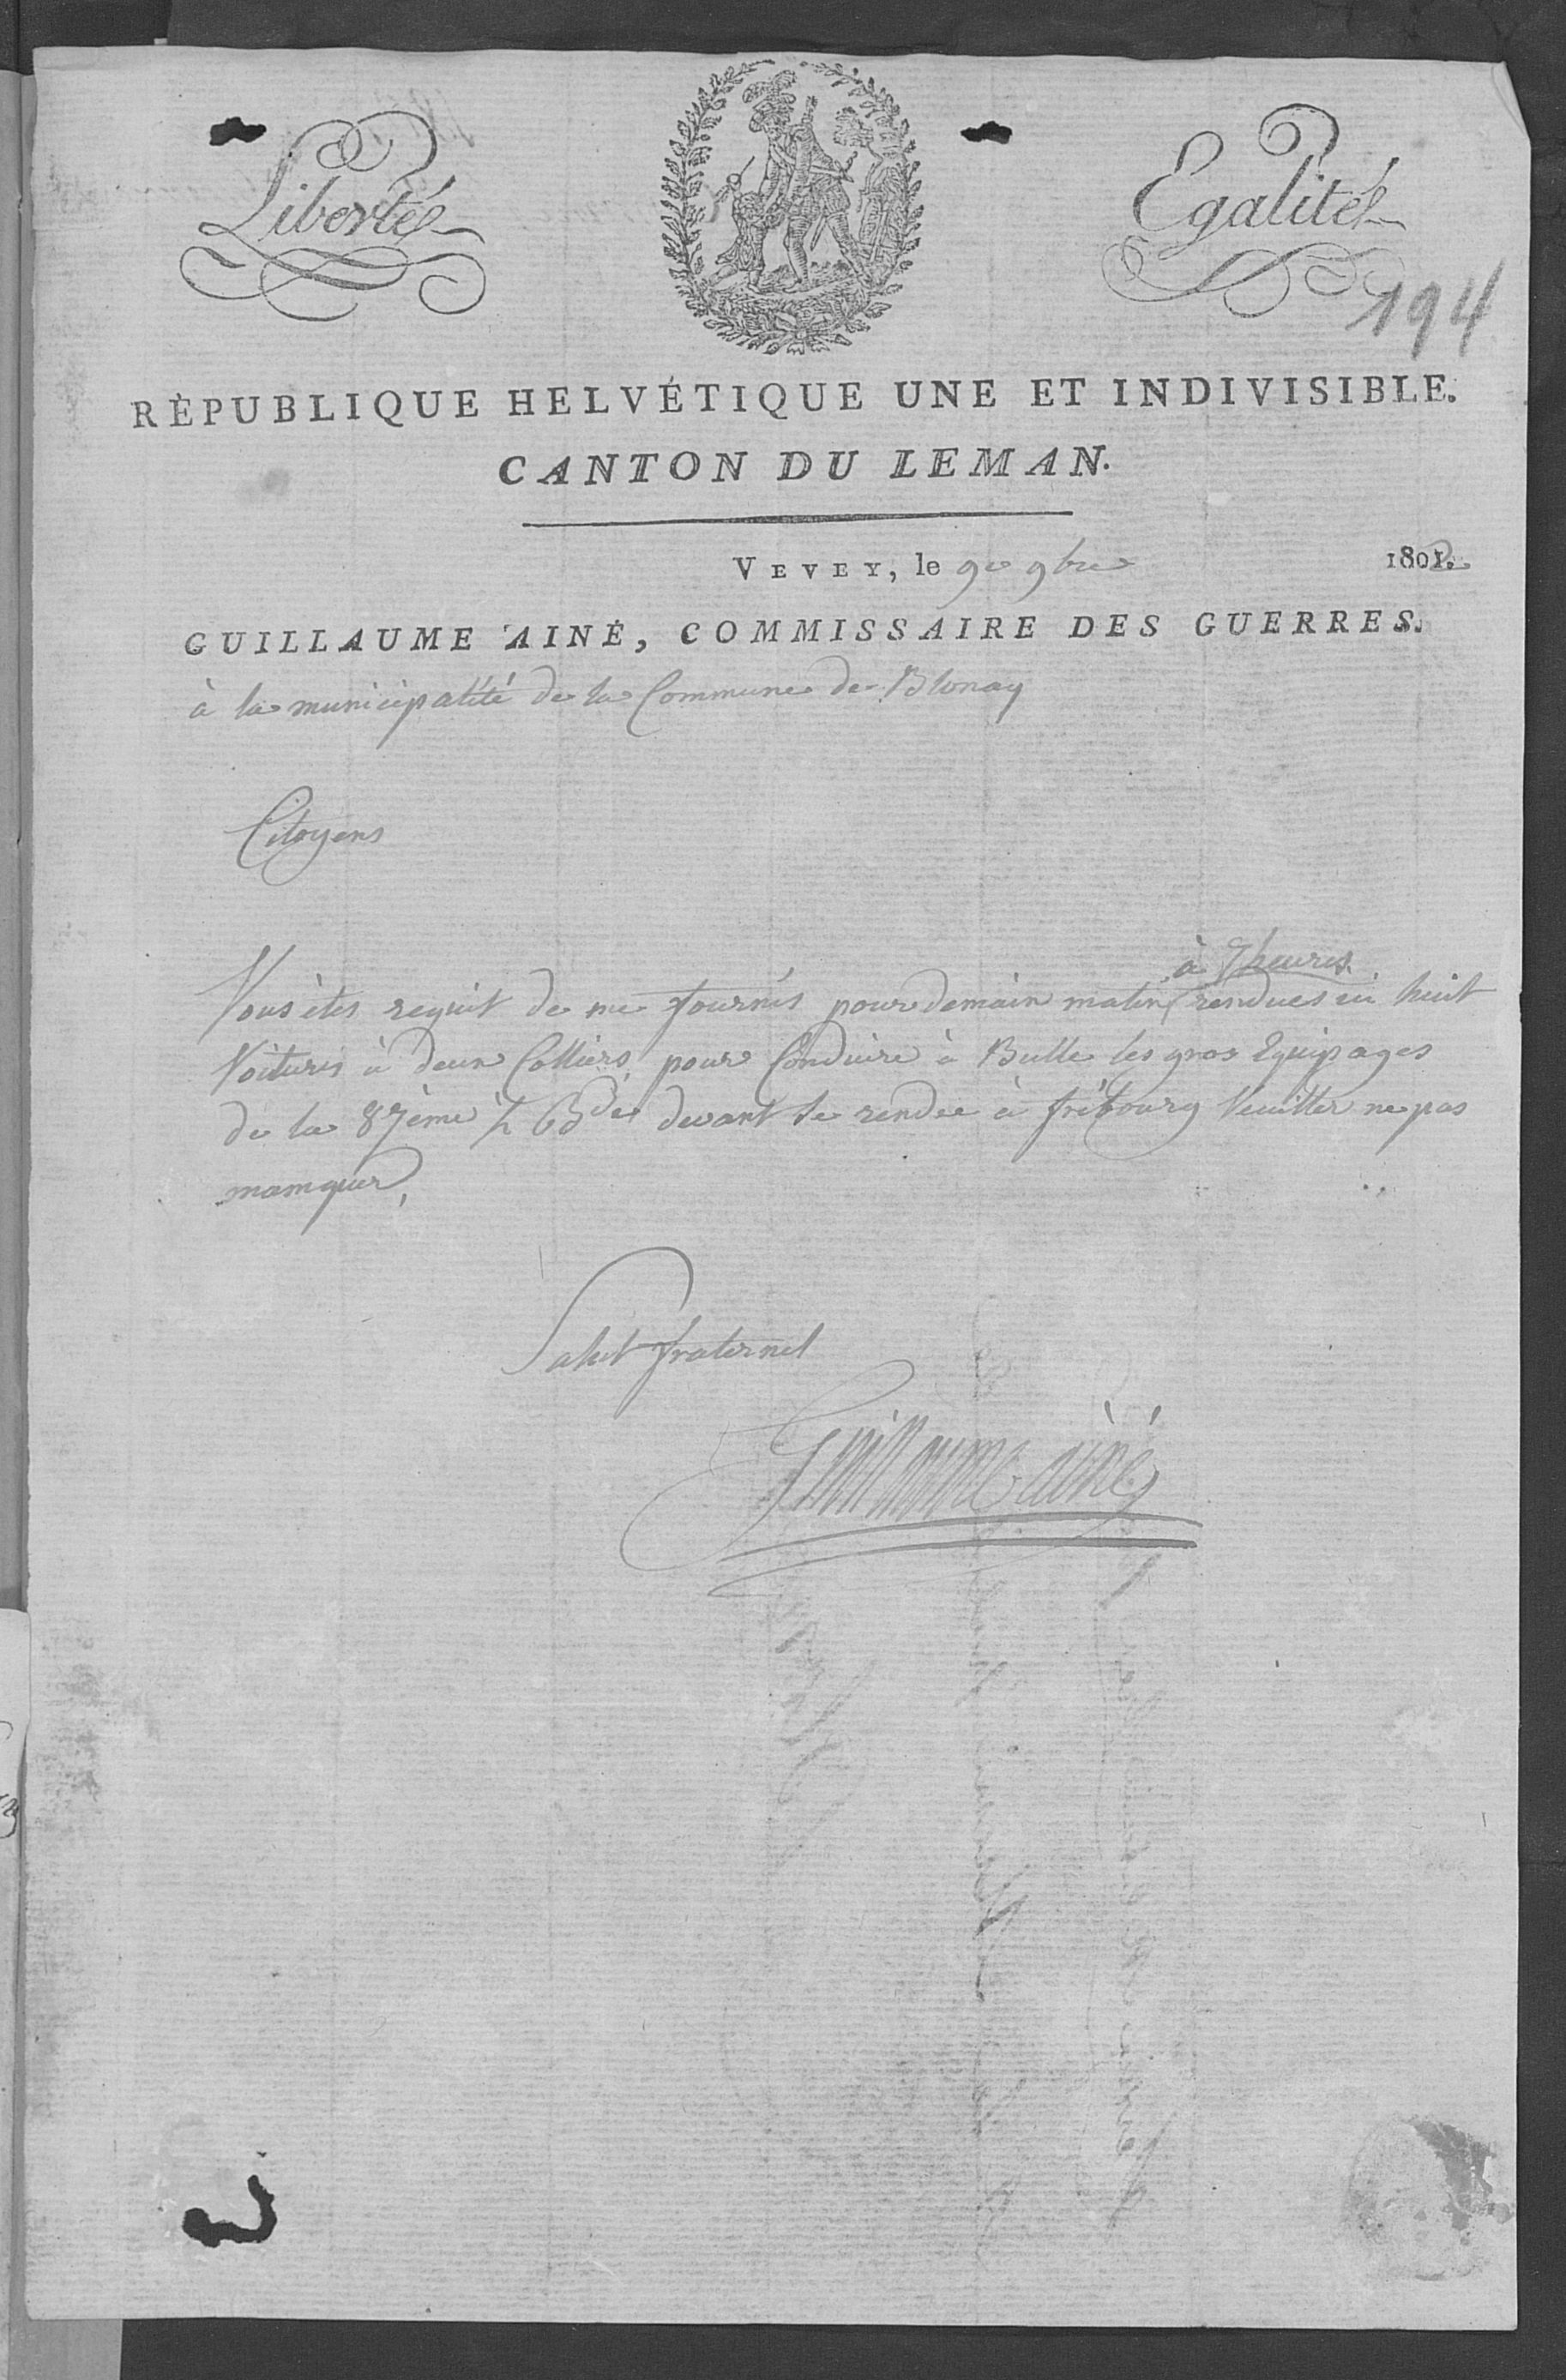 Liberté
Egalité
194
RÉPUBLIQUE HELVÉTIQUE UNE ET INDIVISIBLE.
CANTON DU LEMAN.
VEVEY, le 9e 9bre 1802
GUILLAUME AINÉ, COMMISSAIRE DES GUERRES.
à la municipalité de la Commune de Blonay
Citoyens
à 7 heures
Vous êtes requit de me fournis pour demain matin rendues ici huit
Voitures à deux Colliers pour Conduire à Bulle les gros Equipages
de la 87ème ½ Bde devant se rendre à fribourg Veuillez ne pas
manquer,
Salut fraternel
Guillaume ainé